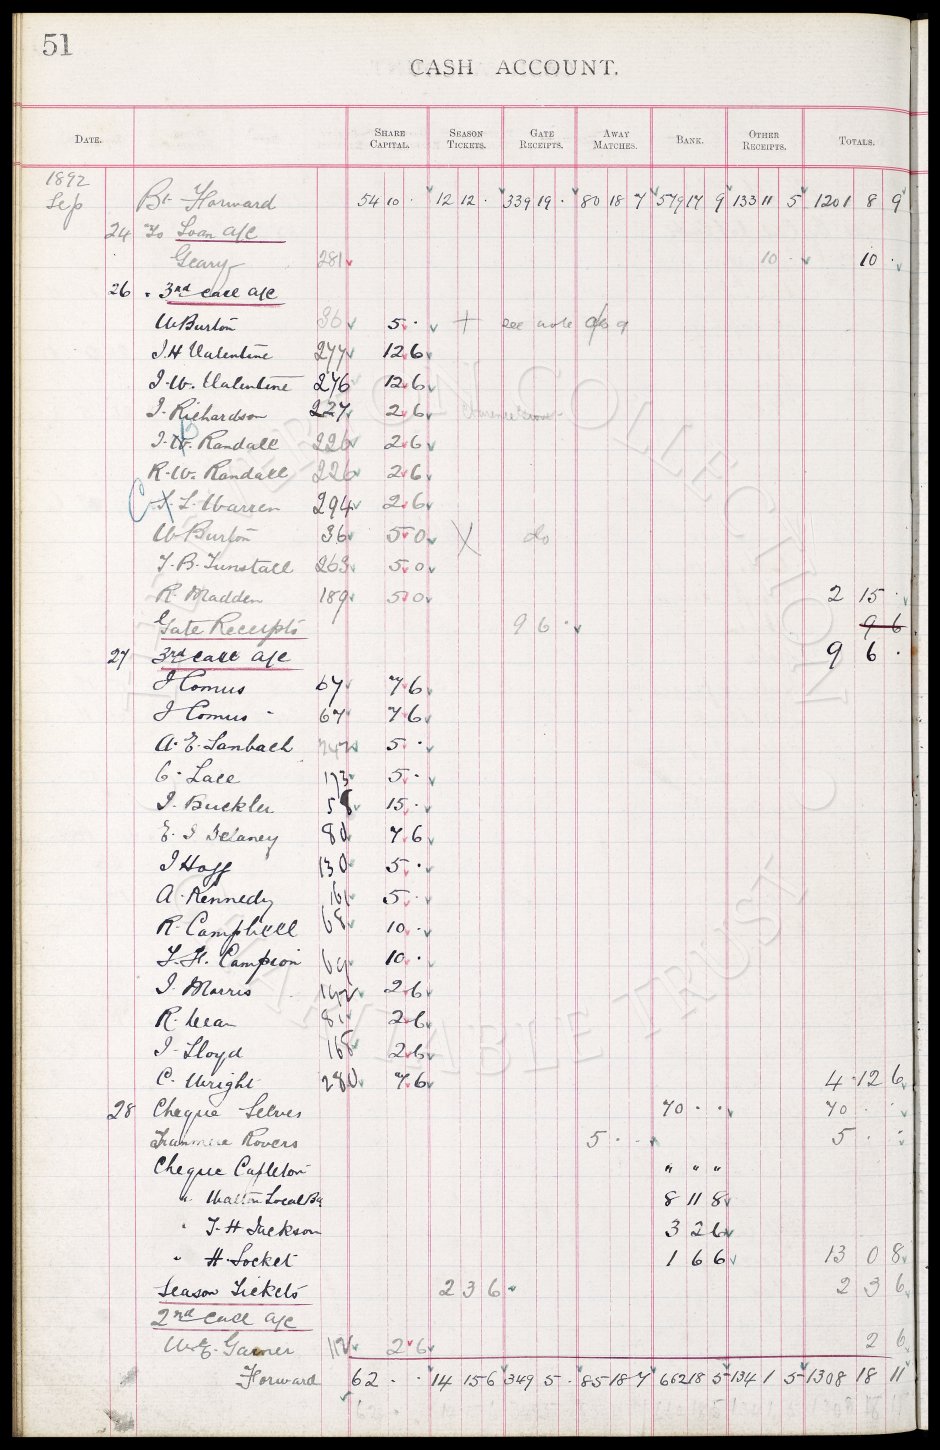 51
CASH ACCOUNT.
DATE. SHARE CAPITAL. SEASON TICKETS. GATE RECEIPTS. AWAY MATCHES. BANK. OTHER RECEIPTS. TOTALS.
1892
Sep Bt Forward 54 10 · 12 12 · 339 19 · 80 18 7 579 17 9 133 11 5 1201 8 9
24 To Loan a/c
Geary 281 10 · 10 ·
26 " 3rd call a/c
W Burton 36 5 · + see note do 9
J H Valentine 277 12 6
J. W. Valentine 276 12 6
J. Richardson 227 2 6
J. W. Randall 226 2 6
R. W. Randall 226 2 6
C L. Warren 294 2 6
W Burton 36 5 0 X do
T. B. Tunstall 263 5 0
R. Madden 189 5 0 2 15 ·
Gate Receipts 9 6 · 9 6
27 3rd call a/c 9 6 ·
J Comus 67 7 6
J Comus " 67 7 6
A. E. Lanbach 242 5 ·
C. Lace 173 5 ·
J. Buckler 58 15 ·
E. J Delaney 80 7 6
J Hoff 130 5 ·
A. Kennedy 161 5 ·
R. Campbell 68 10 ·
T. H. Campion 69 10 ·
J. Morris 192 2 6
R. Dean 81 2 6
J. Lloyd 168 2 6
C. Wright 280 7 6 4 · 12 6
28 Cheque Selves 70 · · 70 · ·
Tranmere Rovers 5 · · 5 · ·
Cheque Capleton " " "
" Walton Local Bd 8 11 8
" T. H Jackson 3 2 6
" H. Locket 1 6 6 13 0 8
Season Tickets 2 3 6 2 3 6
2nd call a/c
W. E. Garner 112 2 6 2 6
Forward 62 · · 14 15 6 349 5 · 85 18 7 662 18 5 134 1 5 1308 18 11